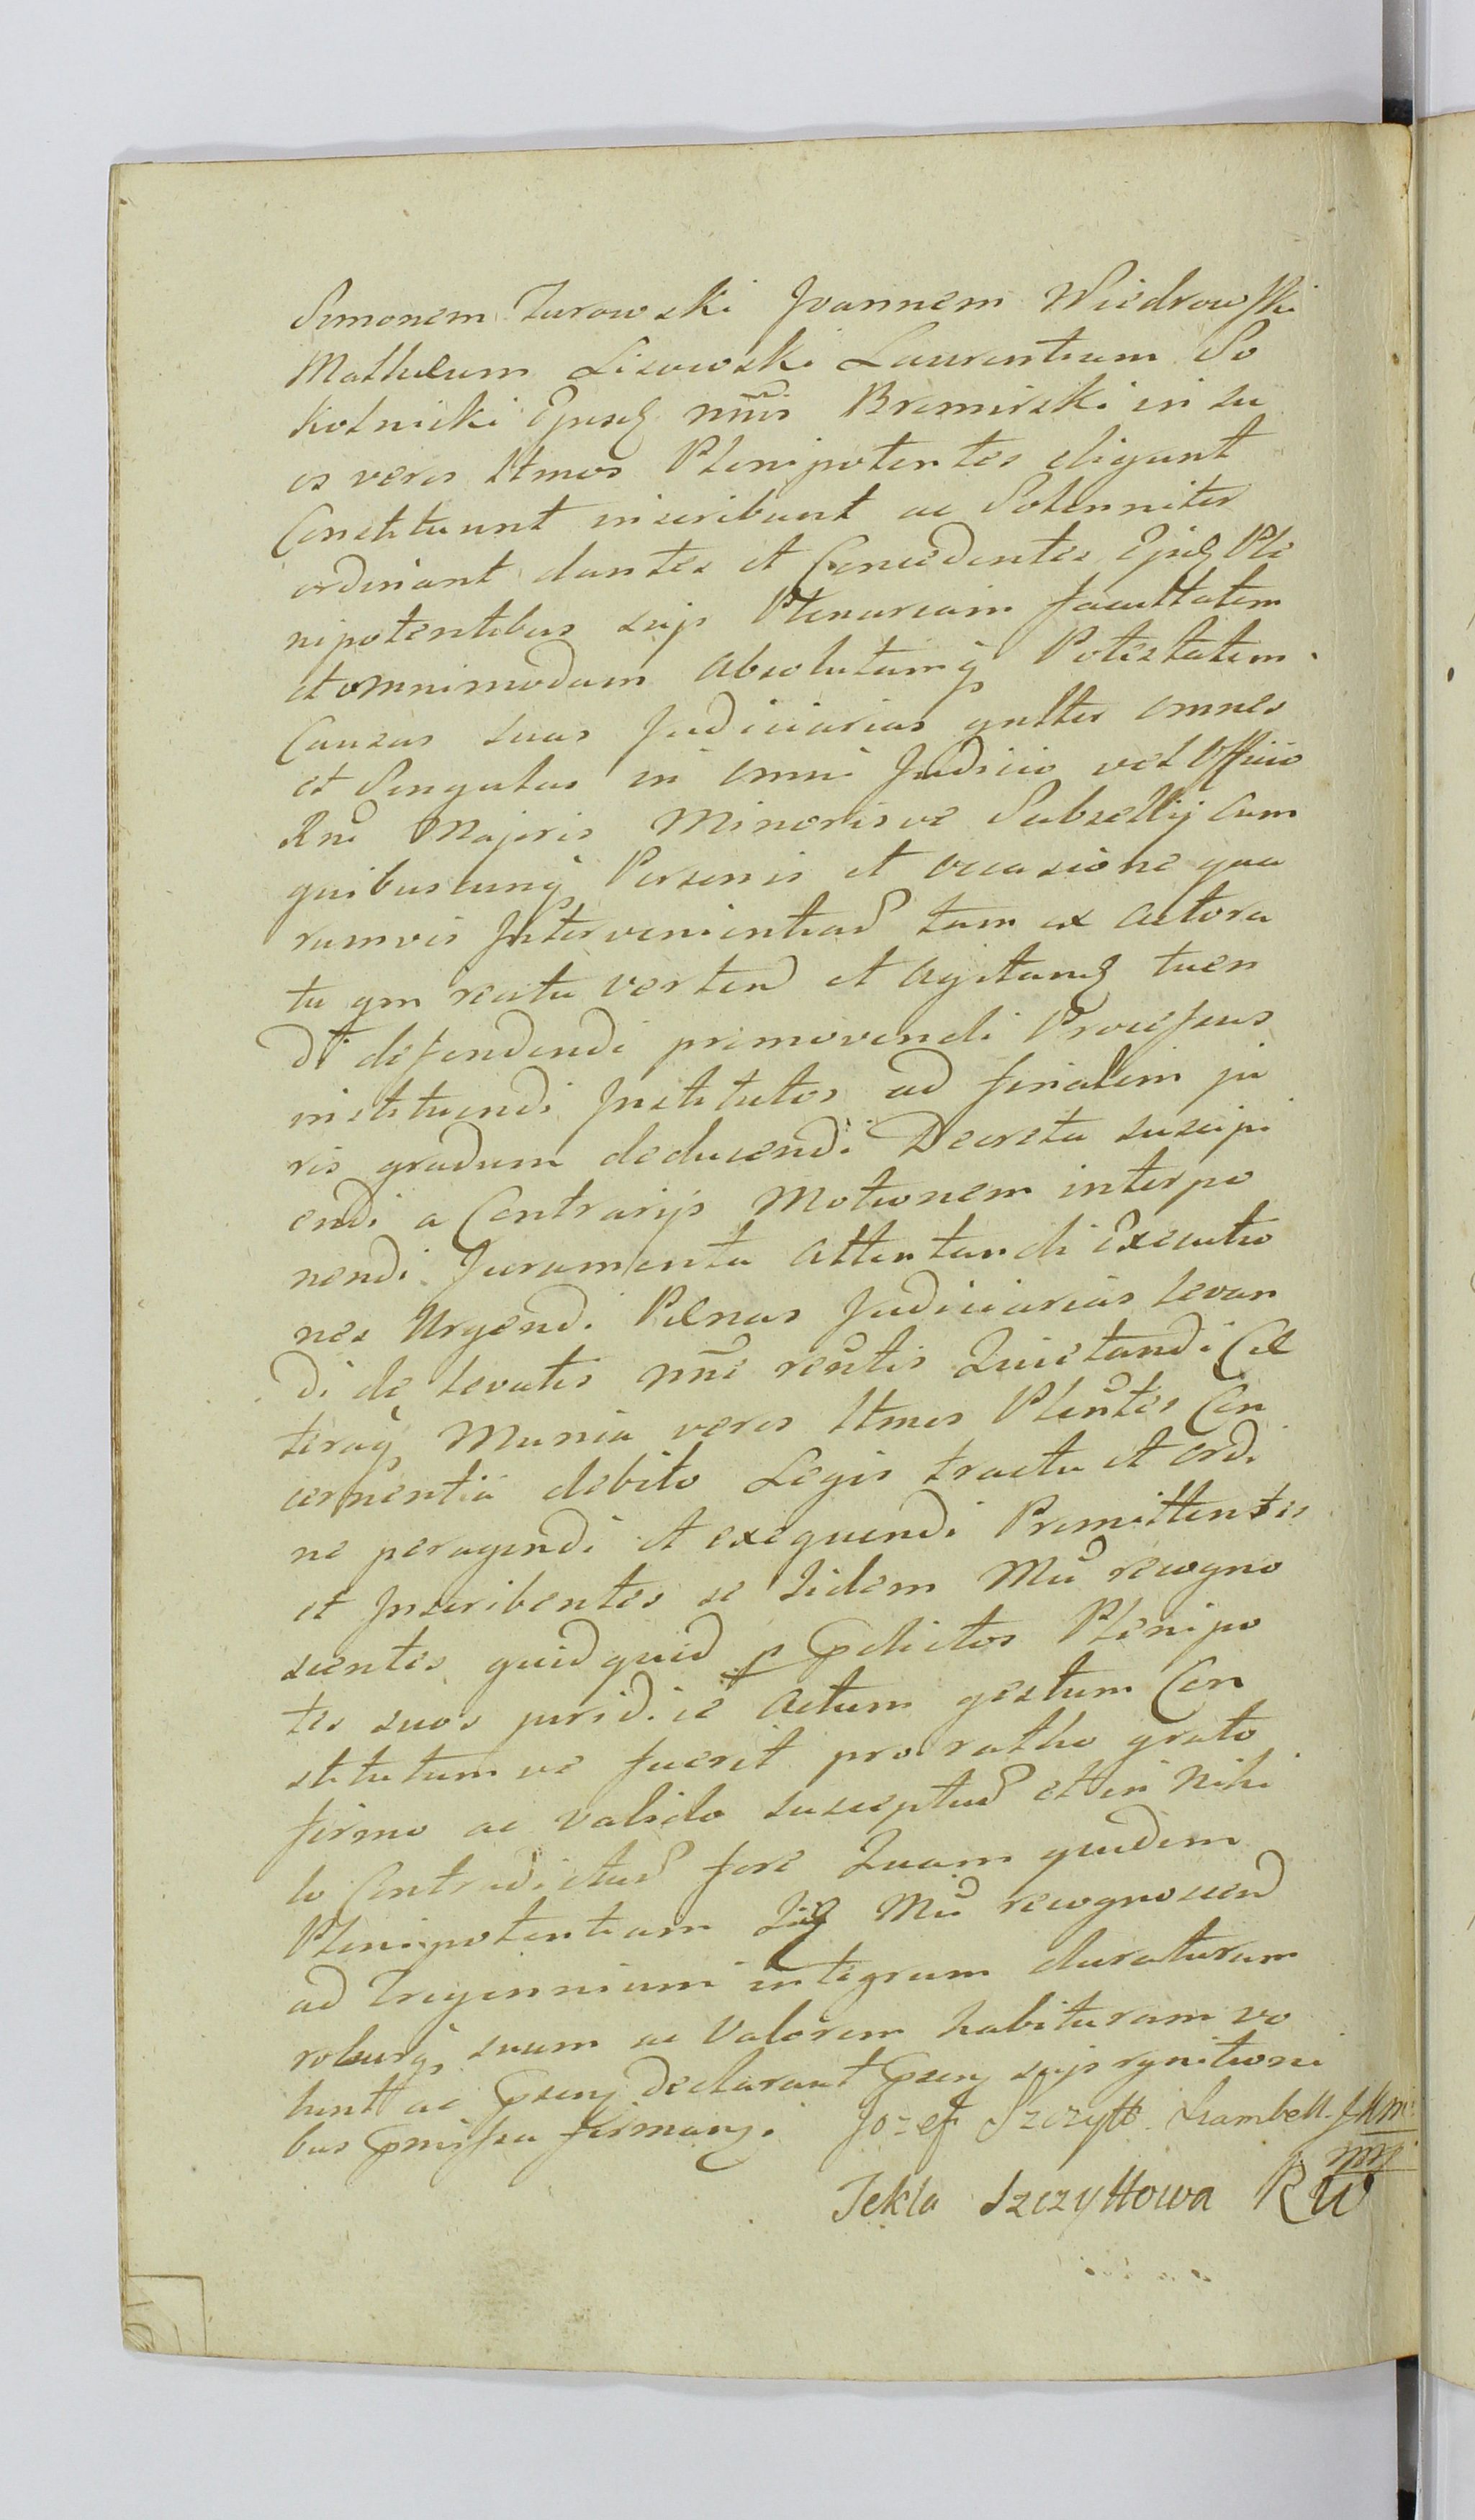 Simonem Turowski Joannem Wiedrowski
Mathæum Lisowski Laurentium So
kolnicki Ejusq nnũs Bremirski in su
os veros Ltmos Plenipotentes eligunt
Constituunt inscribunt ac Solenniter
ordinant dantes et Concedentes Ejsq Ple
nipotentibus suis Plenariam facultatem
et omnimodam absolutamq Potestatem
Causas suas Judiciarias gnlter omnes
et Singulas in omni Judicio vel Officio
Rni Majoris Minorisve Subsellij cum
quibuscunq Personis et occasione qua
rumvis Intervenientiad tam ex actora
tu qm reatu vertend et agitand tuen
di defendendi promovendi Processus
instituendi Institutos ad finalem ju
ris gradum deducendi Decreta suscipi
endi a Contrarijs Motionem interpo
nendi Juramenta attentandi Executio
nes Urgendi Pænas Judiciarias levan
di de levatis nnĩe reñtis Quietandi Cæ
teraq Munia veros Ltmos Pleñtes Con
cernentia debito Legis tractu et ordi
ne peragendi et exequendi Promittentes
et Inscribentes se Iidem Mũ recogno
scentes quidquid p pdictos Plenipo
tes suos juridicè actum gestum Con
stitutum ve fuerit pro ratho grato
firmo ac valido susceptud et in Nihi
lo Contradictud fore Quam quidem
Plenipotentiam Iiq Mũ recognoscend
ad Trigennium integrum duraturam
roburq suum ac Valorem habituram vo
lunt ac psenq declarant psenq suis rgnitioni
bus pmissa firmanq. Jozef Szczytt Szambell. JKMci
mp
Tekla Szczyttowa RW